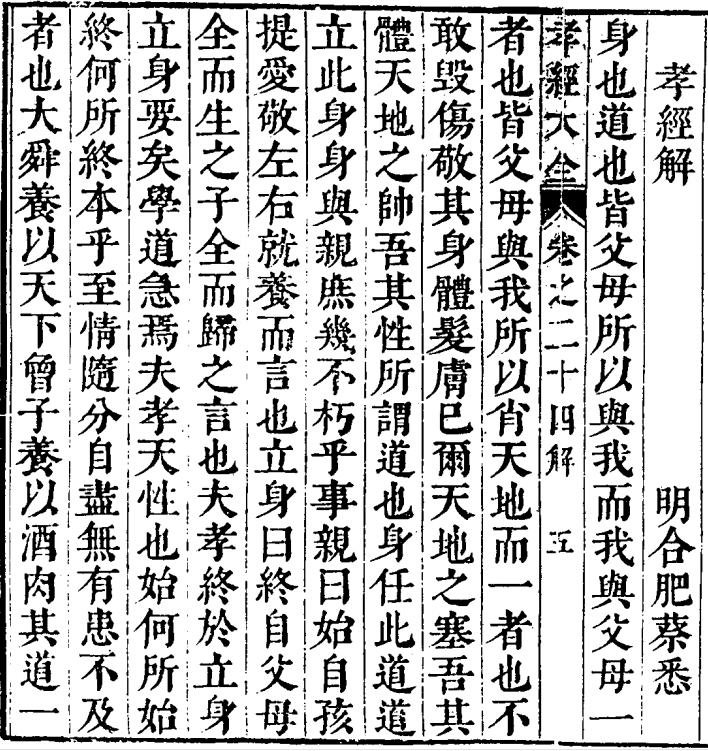 孝經解 明合肥蔡悉
身也道也皆父母所以與我而我與父母一
孝經大全 卷之二十四解 五
者也皆父母與我所以肖天地而一者也不
敢毀傷敬其身體髮膚已爾天地之塞吾其
體天地之帥吾其性所謂道也身任此道道
立此身身與親庶幾不朽乎事親曰始自孩
提愛敬左右就養而言也立身曰終自父母
全而生之子全而歸之言也夫孝終於立身
立身要矣學道急焉夫孝天性也始何所始
終何所終本乎至情隨分自盡無有患不及
者也大舜養以天下曾子養以酒肉其道一